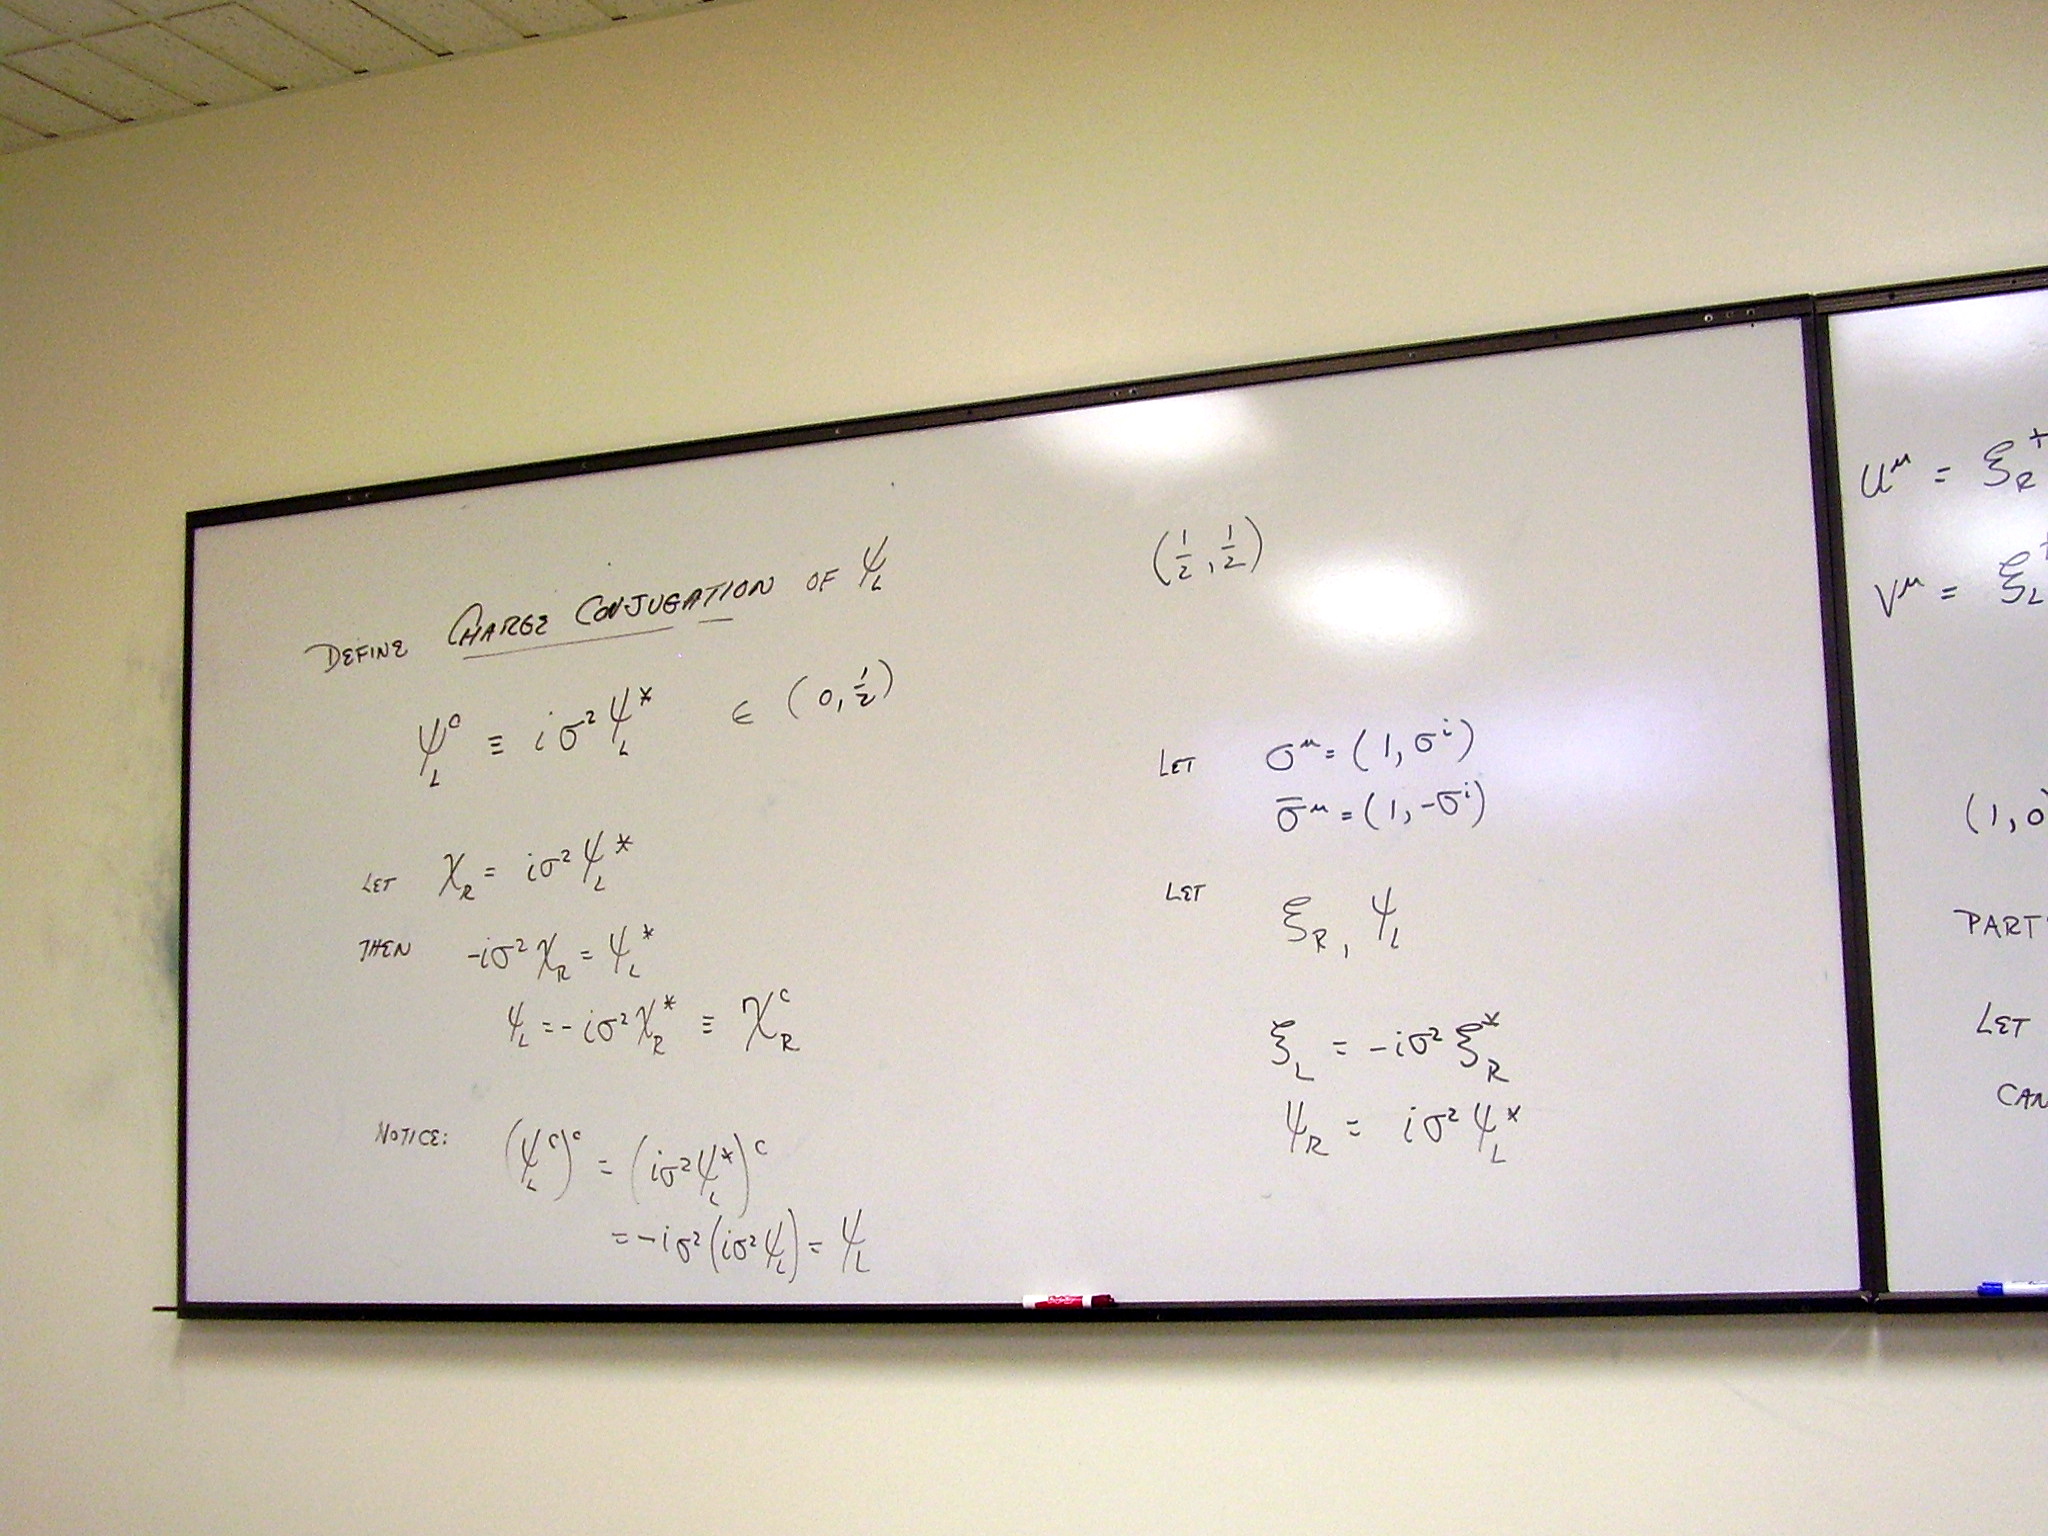 DEFINE CHARGE CONJUGATION OF ψ_L
ψ_L^c ≡ iσ² ψ_L^* ∈ (0, 1/2)
LET χ_R = iσ² ψ_L^*
THEN -iσ² χ_R = ψ_L^*
ψ_L = -iσ² χ_R^* ≡ χ_R^c
NOTICE: (ψ_L^c)^c = (iσ² ψ_L^*)^c
= -iσ² (iσ² ψ_L) = ψ_L
(1/2, 1/2)
LET σ^μ = (1, σ^i)
σ̄^μ = (1, -σ^i)
LET ξ_R, ψ_L
ξ_L = -iσ² ξ_R^*
ψ_R = iσ² ψ_L^*
U^μ = ξ_R^†
V^μ = ξ_L^†
(1, 0
PART
LET
CAN